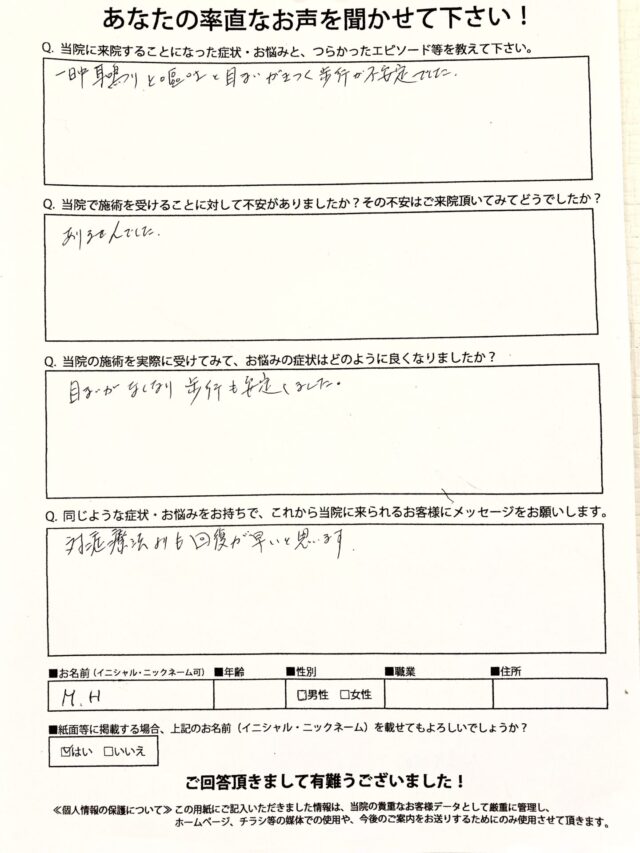 あなたの率直なお声を聞かせて下さい！
Q. 当院に来院することになった症状・お悩みと、つらかったエピソード等を教えて下さい。
一日中耳鳴りと嘔吐と目まいがきつく歩行が不安定でした.
Q. 当院で施術を受けることに対して不安がありましたか？その不安はご来院頂いてみてどうでしたか？
ありませんでした.
Q. 当院の施術を実際に受けてみて、お悩みの症状はどのように良くなりましたか？
目まいがなくなり歩行も安定しました。
Q. 同じような症状・お悩みをお持ちで、これから当院に来られるお客様にメッセージをお願いします。
対症療法よりも回復が早いと思います.
■お名前（イニシャル・ニックネーム可） ■年齢 ■性別 ■職業 ■住所
M.H □男性 □女性
■紙面等に掲載する場合、上記のお名前（イニシャル・ニックネーム）を載せてもよろしいでしょうか？
☑はい □いいえ
ご回答頂きまして有難うございました！
≪個人情報の保護について≫ この用紙にご記入いただきました情報は、当院の貴重なお客様データとして厳重に管理し、
ホームページ、チラシ等の媒体での使用や、今後のご案内をお送りするためにのみ使用させて頂きます。